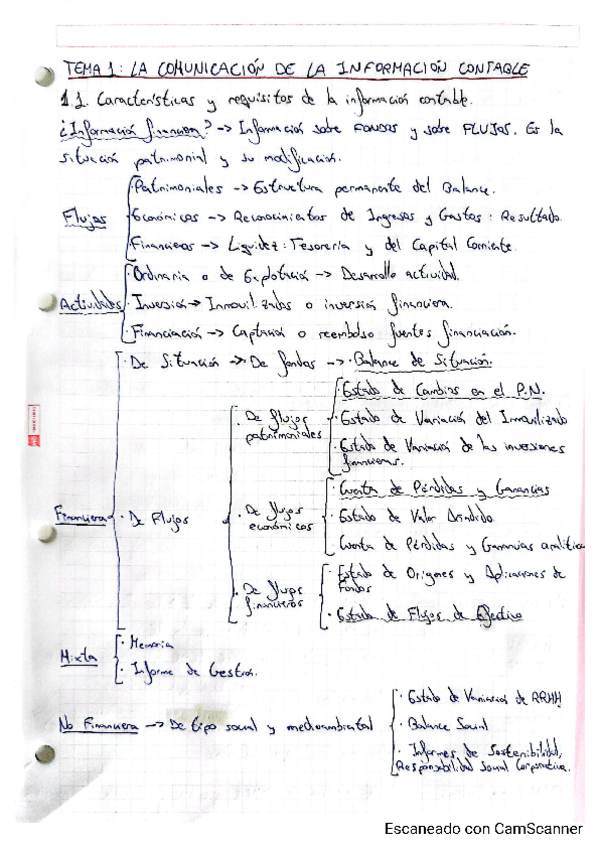 TEMA 1: LA COMUNICACIÓN DE LA INFORMACIÓN CONTABLE
1.1. Características y requisitos de la información contable.
¿Información financiera? -> Información sobre FONDOS y sobre FLUJOS. Es la
situación patrimonial y su modificación.
Flujos
Patrimoniales -> Estructura permanente del Balance.
Económicos -> Reconocimientos de Ingresos y Gastos: Resultado.
Financieros -> Liquidez: Tesorería y del Capital Corriente.
Actividades
· Ordinaria o de Explotación -> Desarrollo actividad.
· Inversión -> Inmovilizados o inversión financiera.
· Financiación -> Captación o reembolso fuentes financiación.
Financiera
· De Situación -> De fondos -> · Balance de Situación.
· De Flujos
· De flujos
patrimoniales
· Estado de Cambios en el P.N.
· Estado de Variación del Inmovilizado
· Estado de Variación de las inversiones
financieras.
· De flujos
económicos
· Cuenta de Pérdidas y Ganancias
· Estado de Valor Añadido
· Cuenta de Pérdidas y Ganancias analítica
· De flujos
financieros
· Estado de Orígenes y Aplicaciones de
Fondos
· Estado de Flujos de Efectivo
Mixta
· Memoria
· Informe de Gestión.
No Financiera -> De tipo social y medioambiental
· Estado de Variación de RRHH
· Balance Social
· Informes de Sostenibilidad,
Responsabilidad Social Corporativa.
Escaneado con CamScanner